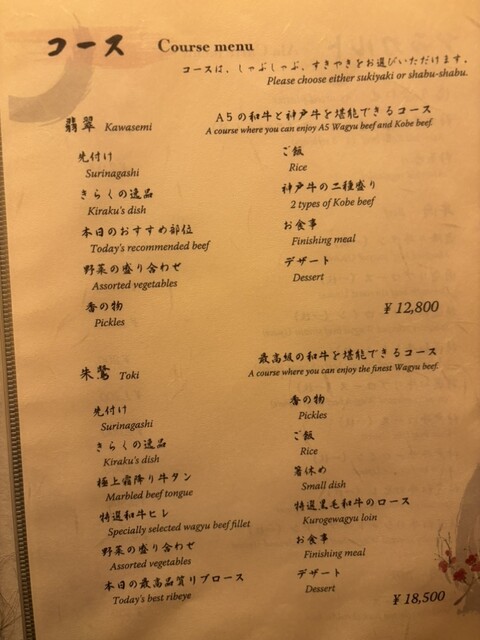 コース Course menu
コースは、しゃぶしゃぶ、すきやきをお選びいただけます。
Please choose either sukiyaki or shabu-shabu.
翡翠 Kawasemi
A5の和牛と神戸牛を堪能できるコース
A course where you can enjoy A5 Wagyu beef and Kobe beef.
先付け
Surinagashi
きらくの逸品
Kiraku's dish
本日のおすすめ部位
Today's recommended beef
野菜の盛り合わせ
Assorted vegetables
香の物
Pickles
ご飯
Rice
神戸牛の二種盛り
2 types of Kobe beef
お食事
Finishing meal
デザート
Dessert
¥12,800
朱鷺 Toki
最高級の和牛を堪能できるコース
A course where you can enjoy the finest Wagyu beef.
先付け
Surinagashi
きらくの逸品
Kiraku's dish
極上霜降り牛タン
Marbled beef tongue
特選和牛ヒレ
Specially selected wagyu beef fillet
野菜の盛り合わせ
Assorted vegetables
本日の最高品質リブロース
Today's best ribeye
香の物
Pickles
ご飯
Rice
箸休め
Small dish
特選黒毛和牛のロース
Kurogewagyu loin
お食事
Finishing meal
デザート
Dessert
¥18,500